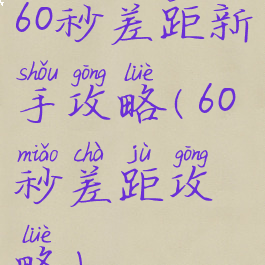 60秒差距新
shǒu gōng lüè
手攻略(60
miǎo chà jù gōng
秒差距攻
lüè
略)